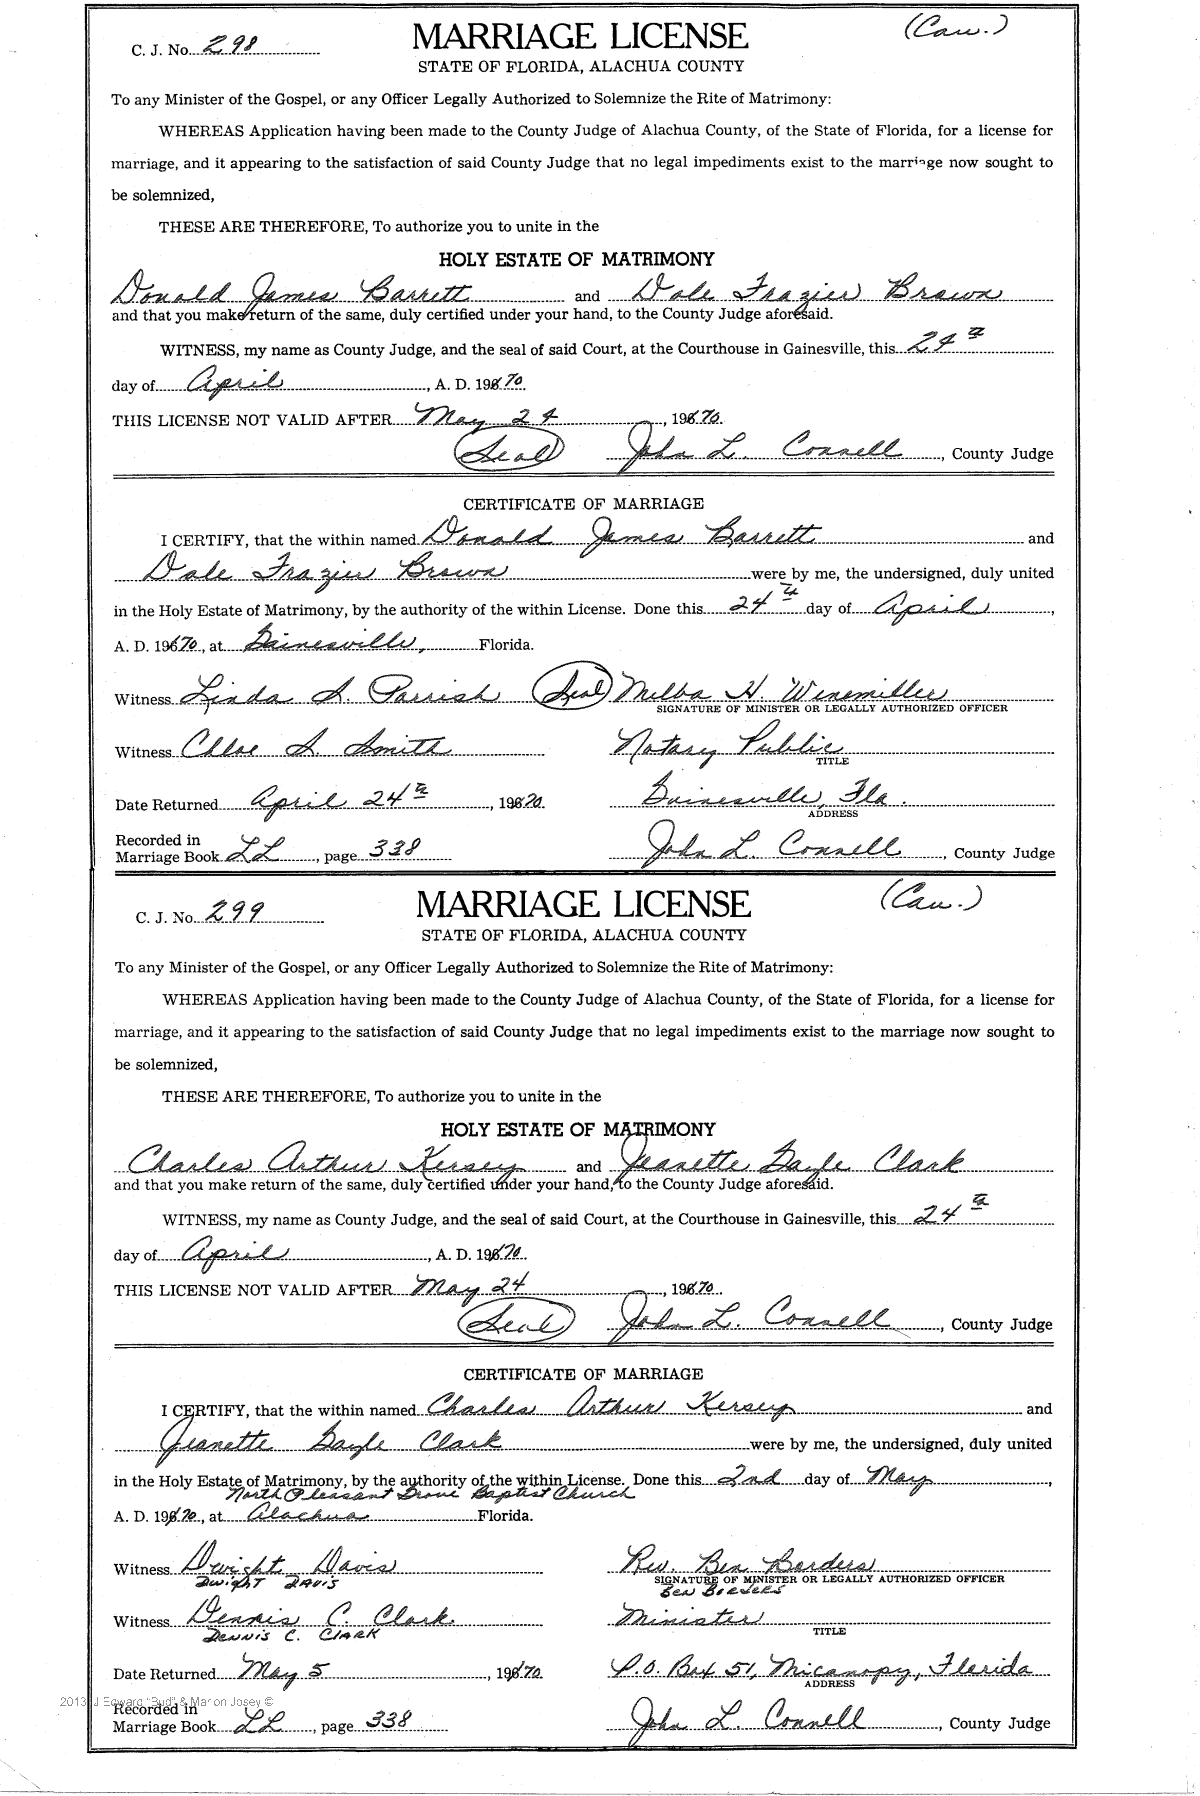 C. J. No. 298 MARRIAGE LICENSE (Cau.)
STATE OF FLORIDA, ALACHUA COUNTY
To any Minister of the Gospel, or any Officer Legally Authorized to Solemnize the Rite of Matrimony:
WHEREAS Application having been made to the County Judge of Alachua County, of the State of Florida, for a license for
marriage, and it appearing to the satisfaction of said County Judge that no legal impediments exist to the marriage now sought to
be solemnized,
THESE ARE THEREFORE, To authorize you to unite in the
HOLY ESTATE OF MATRIMONY
Donald James Barrett and Dale Frazier Brown
and that you make return of the same, duly certified under your hand, to the County Judge aforesaid.
WITNESS, my name as County Judge, and the seal of said Court, at the Courthouse in Gainesville, this 24th
day of April, A. D. 1970.
THIS LICENSE NOT VALID AFTER May 24, 1970.
(Seal) John L. Connell, County Judge
CERTIFICATE OF MARRIAGE
I CERTIFY, that the within named Donald James Barrett and
Dale Frazier Brown were by me, the undersigned, duly united
in the Holy Estate of Matrimony, by the authority of the within License. Done this 24th day of April,
A. D. 1970, at Gainesville, Florida.
Witness Linda S. Parrish (Seal) Melba H. Winemiller
SIGNATURE OF MINISTER OR LEGALLY AUTHORIZED OFFICER
Witness Chloe S. Smith Notary Public
TITLE
Date Returned April 24th, 1970. Gainesville, Fla.
ADDRESS
Recorded in
Marriage Book LL, page 338 John L. Connell, County Judge
C. J. No. 299 MARRIAGE LICENSE (Cau.)
STATE OF FLORIDA, ALACHUA COUNTY
To any Minister of the Gospel, or any Officer Legally Authorized to Solemnize the Rite of Matrimony:
WHEREAS Application having been made to the County Judge of Alachua County, of the State of Florida, for a license for
marriage, and it appearing to the satisfaction of said County Judge that no legal impediments exist to the marriage now sought to
be solemnized,
THESE ARE THEREFORE, To authorize you to unite in the
HOLY ESTATE OF MATRIMONY
Charles Arthur Kersey and Jeanette Gayle Clark
and that you make return of the same, duly certified under your hand, to the County Judge aforesaid.
WITNESS, my name as County Judge, and the seal of said Court, at the Courthouse in Gainesville, this 24th
day of April, A. D. 1970.
THIS LICENSE NOT VALID AFTER May 24, 1970.
(Seal) John L. Connell, County Judge
CERTIFICATE OF MARRIAGE
I CERTIFY, that the within named Charles Arthur Kersey and
Jeanette Gayle Clark were by me, the undersigned, duly united
in the Holy Estate of Matrimony, by the authority of the within License. Done this 2nd day of May,
North Pleasant Grove Baptist Church
A. D. 1970, at Alachua Florida.
Witness Dwight Davis Rev. Ben Borders
DWIGHT DAVIS SIGNATURE OF MINISTER OR LEGALLY AUTHORIZED OFFICER
BEN BORDERS
Witness Dennis C. Clark Minister
DENNIS C. CLARK TITLE
Date Returned May 5, 1970 P.O. Box 51, Micanopy, Florida
ADDRESS
2013 J Edward "Bud" & Marion Josey ©
Recorded in
Marriage Book LL, page 338 John L. Connell, County Judge